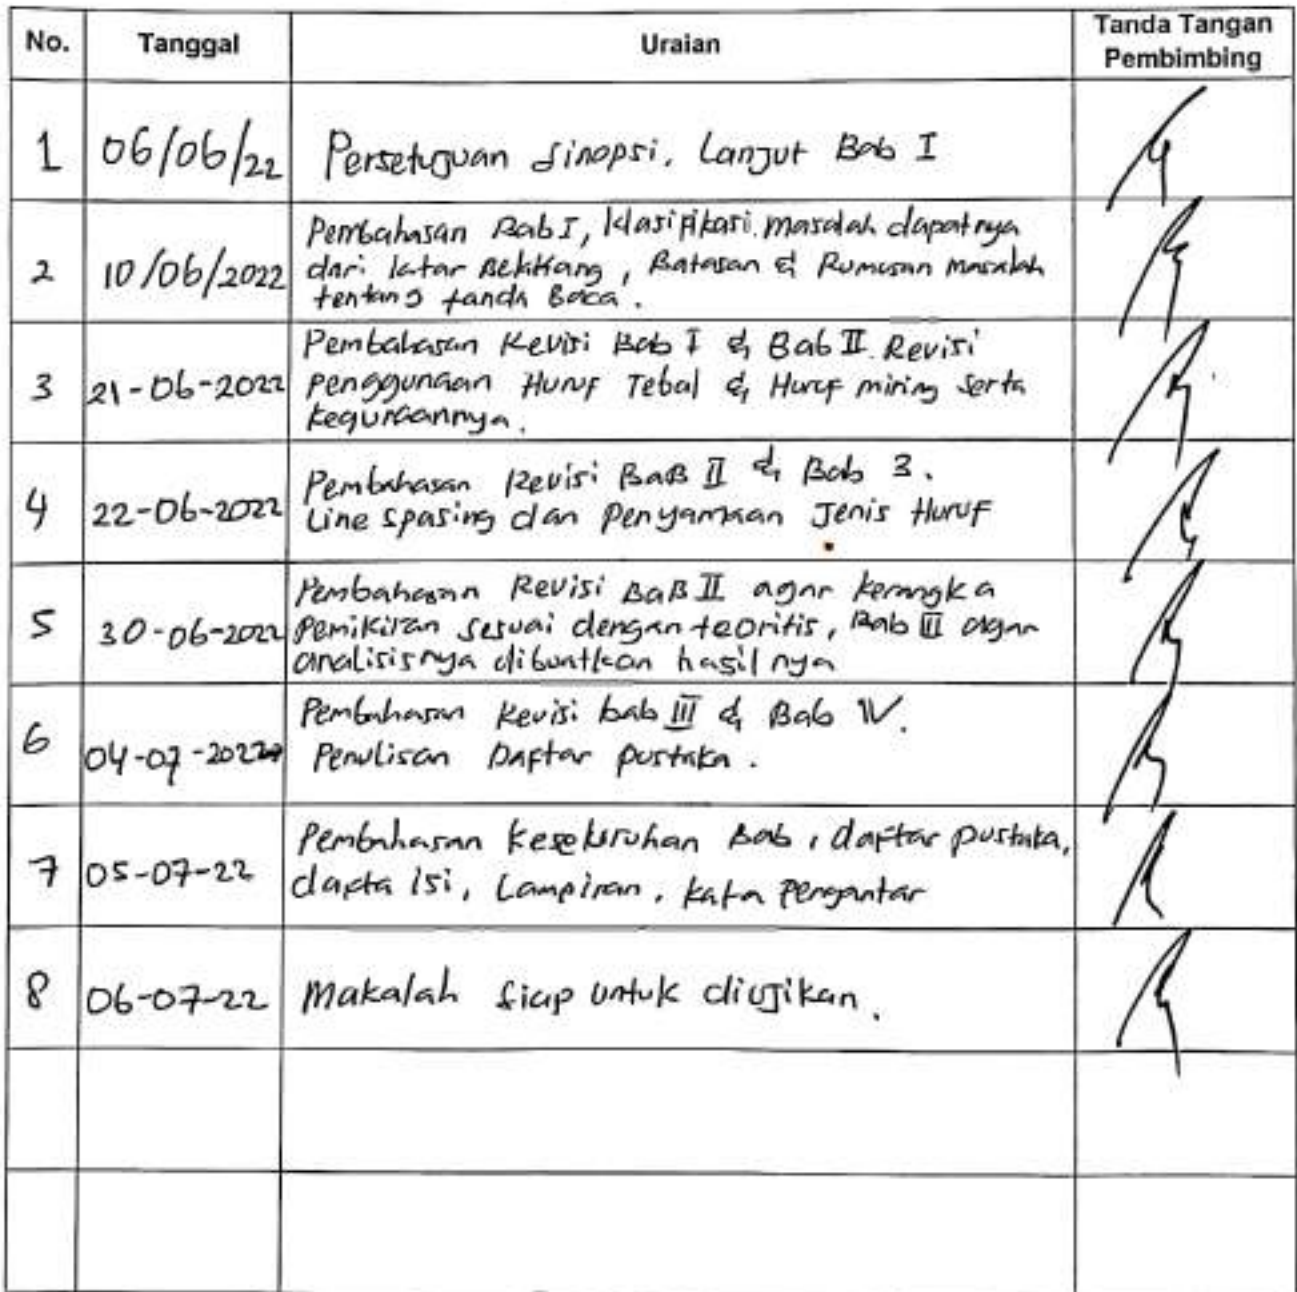 No. Tanggal Uraian Tanda Tangan
Pembimbing
1 06/06/22 Persetujuan Sinopsi. Lanjut Bab I
2 10/06/2022 Pembahasan Bab I, klasifikasi masalah dapatnya
dari latar Belakang, Batasan & Rumusan masalah
tentang tanda Baca.
3 21-06-2022 Pembahasan Revisi Bab I & Bab II. Revisi
penggunaan Huruf Tebal & Huruf miring serta
kegunaannya.
4 22-06-2022 Pembahasan Revisi BaB II & Bab 3.
Line spasing dan Penyamaan Jenis Huruf
5 30-06-2022 Pembahasan Revisi BaB II agar kerangka
Pemikiran sesuai dengan teoritis, Bab III agar
analisisnya dibuatkan hasil nya
6 04-07-2022 Pembahasan Revisi bab III & Bab IV.
Penulisan Daftar pustaka.
7 05-07-22 Pembahasan keseluruhan Bab, daftar pustaka,
dafta isi, Lampiran, kata Pengantar
8 06-07-22 Makalah siap untuk diujikan.